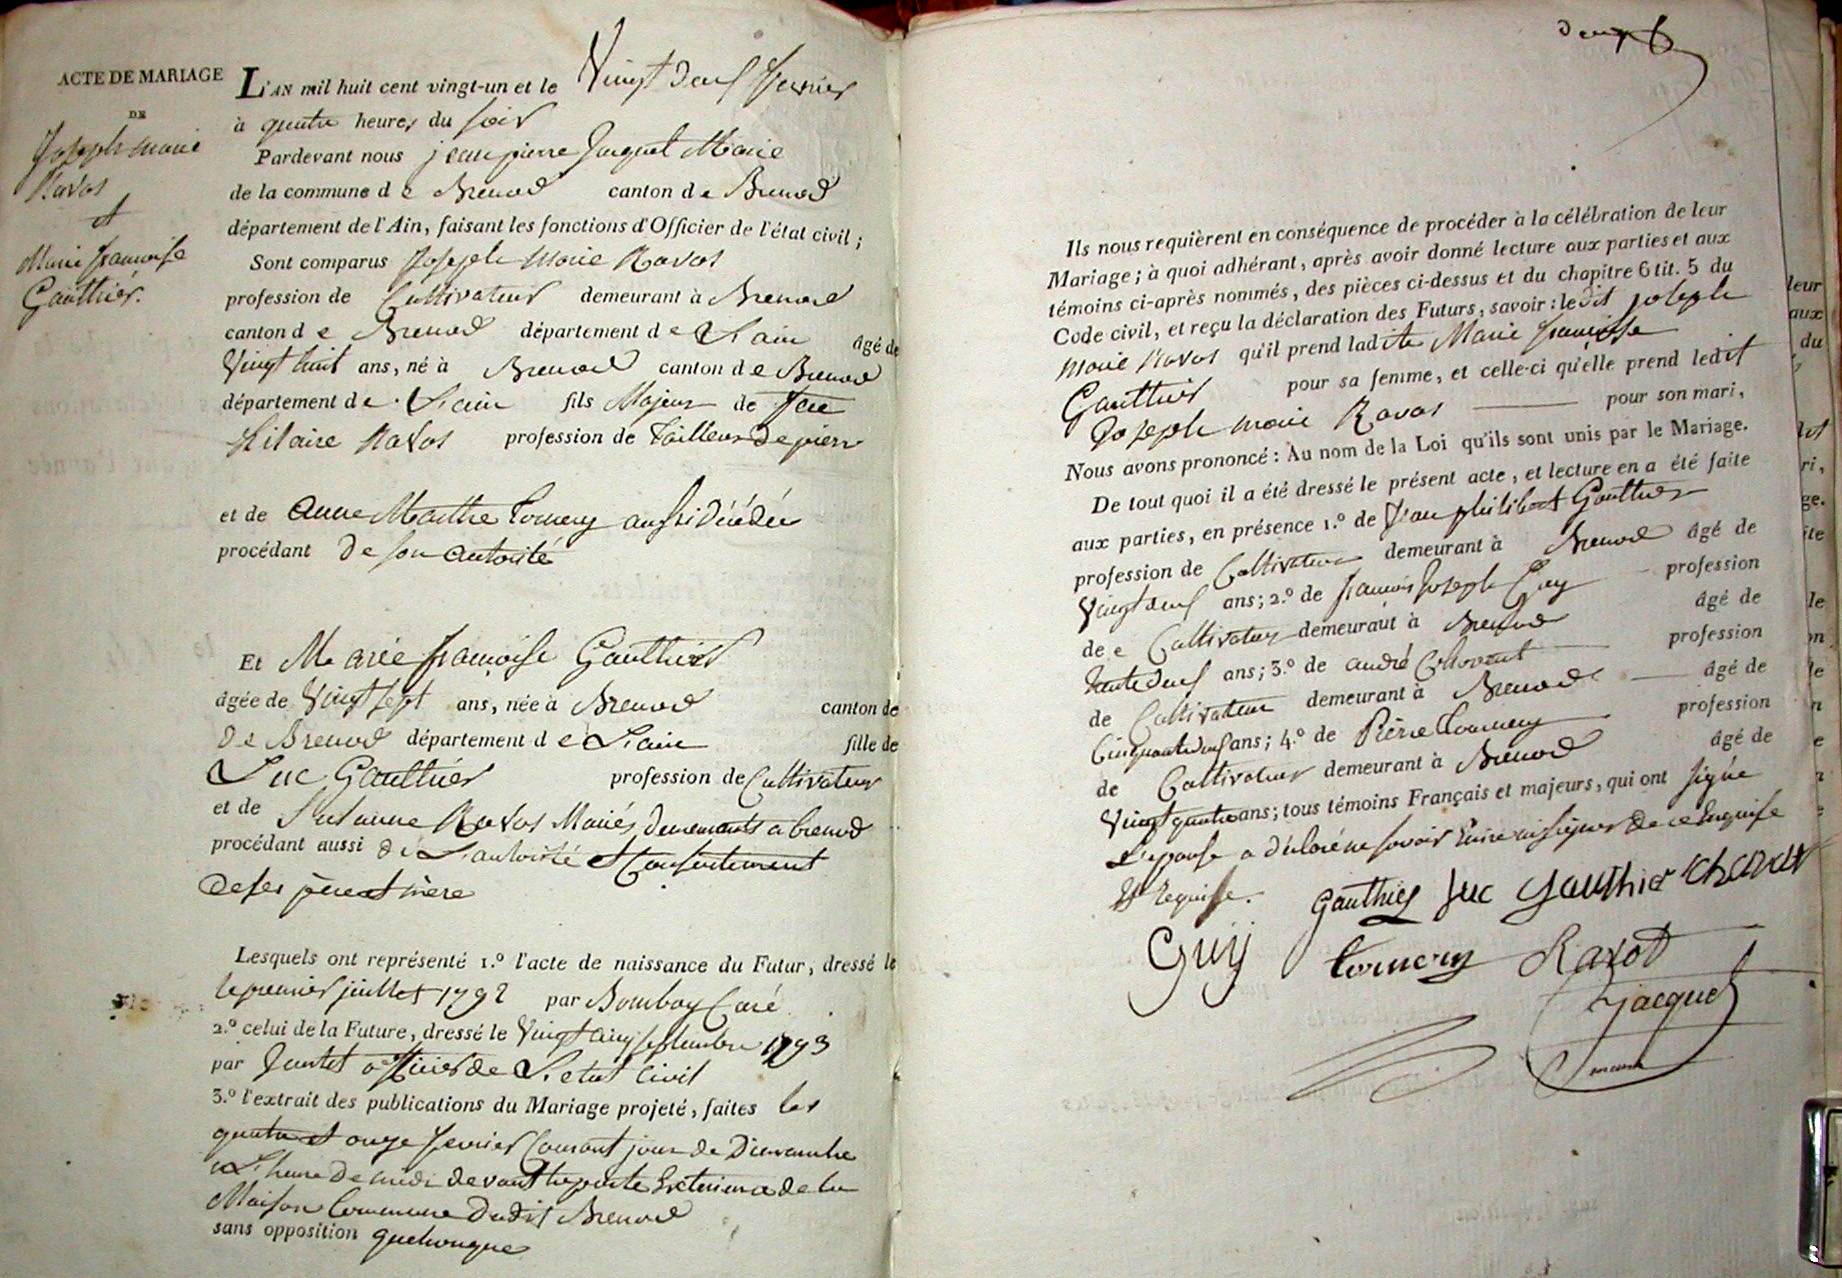 ACTE DE MARIAGE
DE
Joseph marie
Ravot
et
Marie françoise
Gauthier.
L'AN mil huit cent vingt-un et le Vingt deux fevrier
à quatre heures du soir
Pardevant nous jean pierre Jacquet Maire
de la commune de Brenod canton de Brenod
département de l'Ain, faisant les fonctions d'Officier de l'état civil;
Sont comparus Joseph Marie Ravot
profession de Cultivateur demeurant à Brenod
canton de Brenod département de L'ain âgé de
Vingt huit ans, né à Brenod canton de Brenod
département de L'ain fils Majeur de feu
hilaire Ravot profession de tailleur de pierre
et de Anne Marthe Tornery aussi décédée
procédant de son autorité
Et Marie françoise Gauthier
âgée de Vingt sept ans, née à Brenod canton de
De Brenod département de L'ain fille de
Luc Gauthier profession de Cultivateur
et de Susanne Ravot Mariés demeurants a brenod
procédant aussi de L'autorité et Consentement
de ses père et mère
Lesquels ont représenté 1.º l'acte de naissance du Futur, dressé le
le premier juillet 1792 par Bomboy Curé
2.º celui de la Future, dressé le Vingt cinq septembre 1793
par Jantet officier de L'etat Civil
3.º l'extrait des publications du Mariage projeté, faites les
quatre et onze fevrier Courant jour de Dimanche
a L'heure de midi devant la porte Exterieure de la
Maison Commune dudit Brenod
sans opposition quelconque
deux
Ils nous requièrent en conséquence de procéder à la célébration de leur
Mariage; à quoi adhérant, après avoir donné lecture aux parties et aux
témoins ci-après nommés, des pièces ci-dessus et du chapitre 6 tit. 5 du
Code civil, et reçu la déclaration des Futurs, savoir: ledit joseph
marie Ravot qu'il prend ladite Marie françoise
Gauthier pour sa femme, et celle-ci qu'elle prend ledit
Joseph marie Ravot pour son mari,
Nous avons prononcé: Au nom de la Loi qu'ils sont unis par le Mariage.
De tout quoi il a été dressé le présent acte, et lecture en a été faite
aux parties, en présence 1.º de Jean philibert Gauthier
profession de Cultivateur demeurant à Brenod âgé de
Vingt deux ans; 2.º de françois Joseph Guy profession
de Cultivateur demeurant à Brenod âgé de
trente deux ans; 3.º de andré profession
de Cultivateur demeurant à Brenod âgé de
Cinquante deux ans; 4.º de Pierre Tornery profession
de Cultivateur demeurant à Brenod âgé de
Vingt quatre ans; tous témoins Français et majeurs, qui ont signé
L'epouse a déclaré ne savoir Ecrire ni signer de ce Enquise
et Requise.
Gauthier Luc Gauthier
Guy Tornery Ravot
Jacquet
maire
leur
aux
du